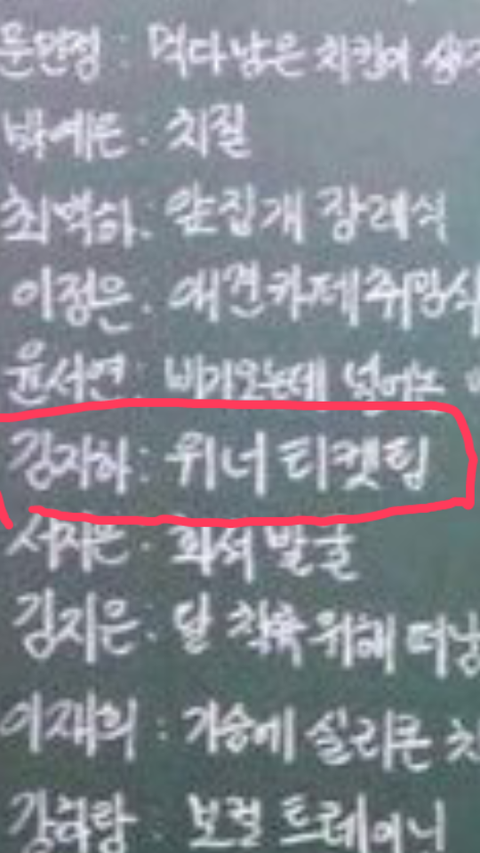 문민정 : 먹다남은 치킨이 생
박예은 . 치질
최백하. 앞집개 장례식
이정은 . 애견카페취망식
윤서연 : 비가오는데 널어논
김자하 : 위너 티켓팅
서지은 . 화석발굴
김지은 : 달 착륙 위해 떠남
이재희 : 가슴에 실리콘
강하람 : 보컬 트레이닝